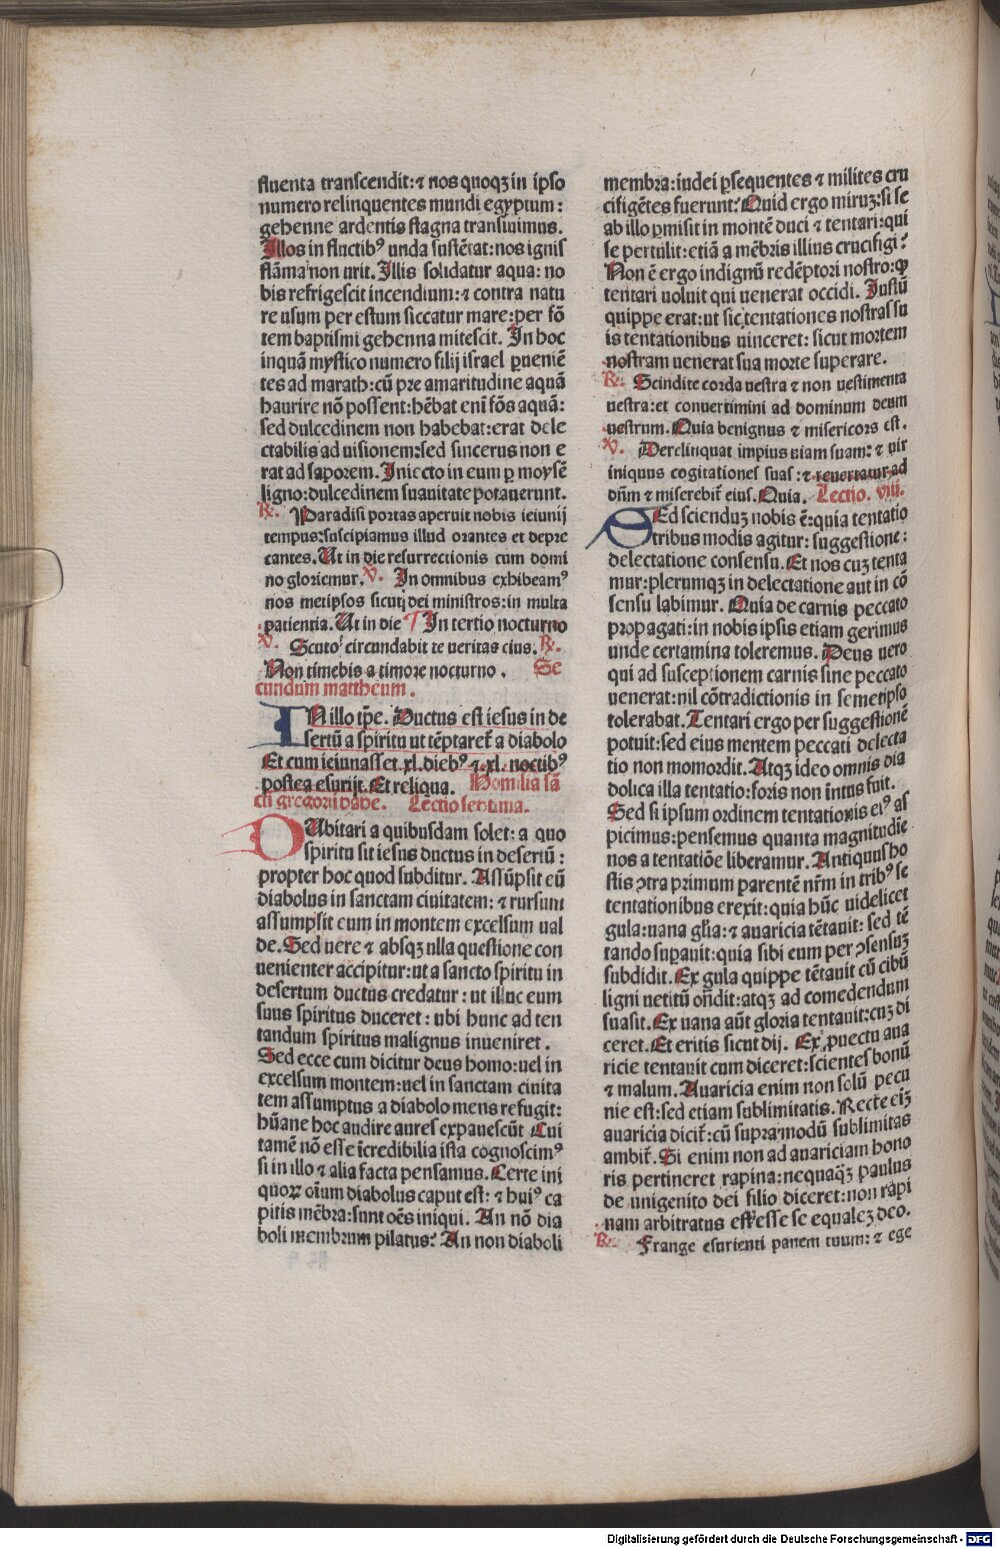 fluenta transcendit:⁊ nos quoqꝫ in ipso
numero relinquentes mundi egyptum:
gehenne ardentis stagna transiuimus.
Illos in fluctibꝰ unda sustētat:nos ignis
flāma non urit. Illis solidatur aqua: no
bis refrigescit incendium:⁊ contra natu
re usum per estum siccatur mare:per fō
tem baptismi gehenna mitescit. In hoc
inquā mystico numero filij israel ꝓueniē
tes ad marath:cū pre amaritudine aquā
haurire nō possent:hēbat eni fōs aquā:
sed dulcedinem non habebat:erat dele
ctabilis ad uisionem:sed sincerus non e
rat ad saporem. Iniecto in eum ꝑ moysē
ligno:dulcedinem suauitate potauerunt.
℟. Paradisi portas aperuit nobis ieiunij
tempus:suscipiamus illud orantes et depre
cantes. Ut in die resurrectionis cum domi
no gloriemur. ℣. In omnibus exhibeamꝰ
nos metipsos sicut dei ministros:in multa
patientia. Ut in die ¶ In tertio nocturno
℣. Scuto circundabit te veritas eius. ℟.
Non timebis a timore nocturno. Se
cundum mattheum.
IN illo tp̄e. Ductus est iesus in de
sertū a spiritu ut tēptaret̄ a diabolo
Et cum ieiunasset .xl. diebꝰ ⁊ .xl. noctibꝰ
postea esurijt. Et reliqua. Homilia sā
cti gregorii pape. Lectio septima.
DUbitari a quibusdam solet: a quo
spiritu sit iesus ductus in desertū:
propter hoc quod subditur. Assūpsit eū
diabolus in sanctam ciuitatem: ⁊ rursum
assumpsit eum in montem excelsum ual
de. Sed uere ⁊ absqꝫ ulla questione con
uenienter accipitur:ut a sancto spiritu in
desertum ductus credatur: ut illuc eum
suus spiritus duceret: ubi hunc ad ten
tandum spiritus malignus inueniret.
Sed ecce cum dicitur deus homo:uel in
excelsum montem:uel in sanctam ciuita
tem assumptus a diabolo mens refugit:
hūane hoc audire aures expauescūt Cui
tamē nō esse īcredibilia ista cognoscimꝰ
si in illo ⁊ alia facta pensamus. Certe ini
quoꝝ oīum diabolus caput est: ⁊ huiꝰ ca
pitis mēbra:sunt oēs iniqui. An nō dia
boli membrum pilatus? An non diaboli
membra:iudei ꝑsequentes ⁊ milites cru
cifigētes fuerunt? Quid ergo miruꝫ:si se
ab illo ꝑmisit in montē duci ⁊ tentari:qui
se pertulit:etiā a mēbris illius crucifigi?
Non ē ergo indignū redēptori nostro:ꝙ
tentari uoluit qui uenerat occidi. Iustū
quippe erat:ut sic tentationes nostras su
is tentationibus uinceret: sicut mortem
nostram uenerat sua morte superare.
℟. Scindite corda uestra ⁊ non uestimenta
uestra:et conuertimini ad dominum deum
uestrum. Quia benignus ⁊ misericors est.
℣. Derelinquat impius uiam suam: ⁊ uir
iniquus cogitationes suas:⁊ reuertatur ad
dūm ⁊ miserebit̄ eius. Quia. Lectio. viij.
SEd scienduꝫ nobis ē:quia tentatio
tribus modis agitur: suggestione:
delectatione consensu. Et nos cuꝫ tenta
mur:plerumqꝫ in delectatione aut in cō
sensu labimur. Quia de carnis peccato
propagati:in nobis ipsis etiam gerimus
unde certamina toleremus. Deus uero
qui ad susceptionem carnis sine peccato
uenerat:nil cōtradictionis in semetipso
tolerabat. Tentari ergo per suggestionē
potuit:sed eius mentem peccati delecta
tio non momordit. Atqꝫ ideo omnis dia
bolica illa tentatio:foris non intus fuit.
Sed si ipsum ordinem tentationis eiꝰ as
picimus:pensemus quanta magnitudīe
nos a tentatiōe liberamur. Antiquus ho
stis ↄtra primum parentē nr̄m in tribꝰ se
tentationibus erexit:quia hūc uidelicet
gula:uana gl̄ia:⁊ auaricia tētauit: sed tē
tando suꝑauit:quia sibi eum per ↄsensuꝫ
subdidit. Ex gula quippe tētauit cū cibū
ligni uetitū oñdit:atqꝫ ad comedendum
suasit. Ex uana aūt gloria tentauit:cuꝫ di
ceret. Et eritis sicut dij. Ex ꝓuectu aua
ricie tentauit cum diceret:scientes bonū
⁊ malum. Auaricia enim non solū pecu
nie est:sed etiam sublimitatis. Recte eiꝫ
auaricia dicit̄:cū supra modū sublimitas
ambit̄. Si enim non ad auariciam hono
ris pertineret rapina:nequaꝗꝫ paulus
de unigenito dei filio diceret:non rapi
nam arbitratus est esse se equaleꝫ deo.
℟. Frange esurienti panem tuum: ⁊ ege
Digitalisierung gefördert durch die Deutsche Forschungsgemeinschaft - DFG